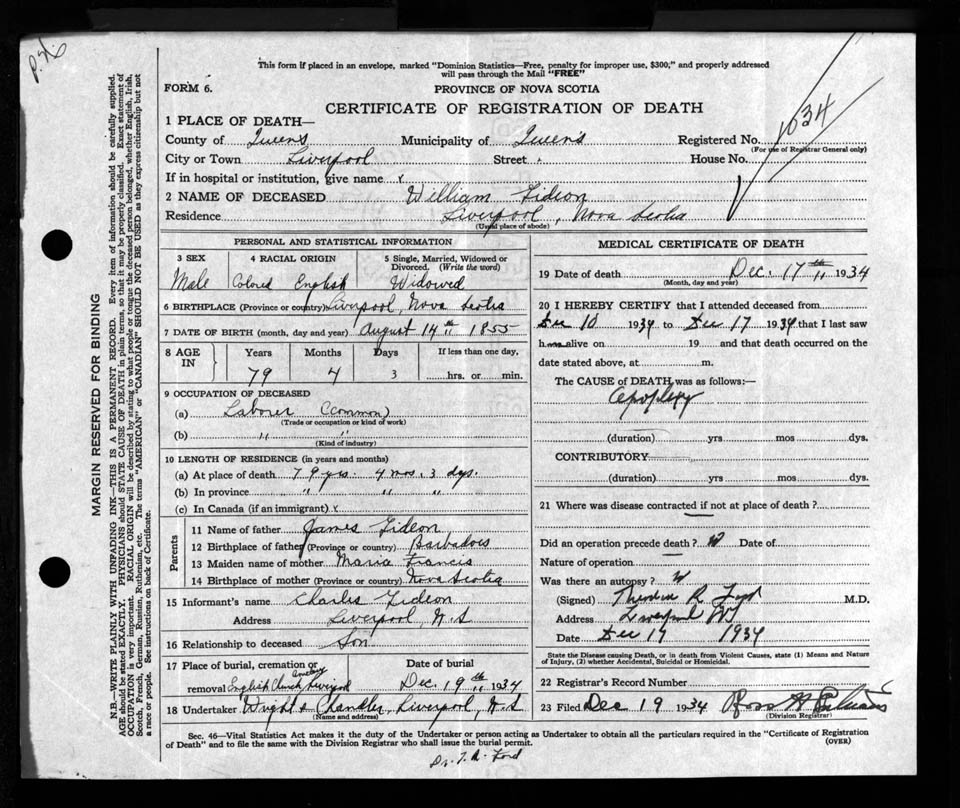 This form if placed in an envelope, marked "Dominion Statistics—Free, penalty for improper use, $300;" and properly addressed
will pass through the Mail "FREE"
FORM 6.
PROVINCE OF NOVA SCOTIA
CERTIFICATE OF REGISTRATION OF DEATH
1034
1 PLACE OF DEATH—
County of Queens Municipality of Queens Registered No.
(For use of Registrar General only)
City or Town Liverpool Street House No.
If in hospital or institution, give name
2 NAME OF DECEASED William Gideon
Residence Liverpool, Nova Scotia
(Usual place of abode)
MARGIN RESERVED FOR BINDING
N.B.—WRITE PLAINLY WITH UNFADING INK—THIS IS A PERMANENT RECORD. Every item of information should be carefully supplied.
AGE should be stated EXACTLY. PHYSICIANS should STATE CAUSE OF DEATH in plain terms, so that it may be properly classified. Exact statement of
OCCUPATION is very important. RACIAL ORIGIN will be described by stating to what people or tongue the deceased person belonged, whether English, Irish,
Scotch, French, German, Russian, Ruthenian, etc. The terms "AMERICAN" or "CANADIAN" SHOULD NOT BE USED as they express citizenship but not
a race or people. See instructions on back of Certificate.
PERSONAL AND STATISTICAL INFORMATION
3 SEX 4 RACIAL ORIGIN 5 Single, Married, Widowed or
Divorced. (Write the word)
Male Colored English Widowed
6 BIRTHPLACE (Province or country) Liverpool, Nova Scotia
7 DATE OF BIRTH (month, day and year) August 14th 1855
8 AGE IN Years Months Days If less than one day.
79 4 3 hrs. or min.
9 OCCUPATION OF DECEASED
(a) Laborer (common)
(Trade or occupation or kind of work)
(b) " "
(Kind of industry)
10 LENGTH OF RESIDENCE (in years and months)
(a) At place of death 79 yrs. 4 mos. 3 dys.
(b) In province " " "
(c) In Canada (if an immigrant)
Parents
11 Name of father James Gideon
12 Birthplace of father (Province or country) Barbadoes
13 Maiden name of mother Maria Francis
14 Birthplace of mother (Province or country) Nova Scotia
15 Informant's name Charles Gideon
Address Liverpool, N.S
16 Relationship to deceased Son
17 Place of burial, cremation or Date of burial
Cemetery
removal English Church Liverpool Dec. 19th 1934
18 Undertaker Wright & Chandler, Liverpool, N.S
(Name and address)
MEDICAL CERTIFICATE OF DEATH
19 Date of death Dec. 17th 1934
(Month, day and year)
20 I HEREBY CERTIFY that I attended deceased from
Dec 10 1934 to Dec 17 1934 that I last saw
h alive on 19 and that death occurred on the
date stated above, at m.
The CAUSE OF DEATH was as follows:—
Apoplexy
(duration) yrs mos dys.
CONTRIBUTORY
(duration) yrs mos dys.
21 Where was disease contracted if not at place of death?
Did an operation precede death? Date of
Nature of operation
Was there an autopsy?
(Signed) Theodore R. Ford M.D.
Address Liverpool NS
Date Dec 17 1934
State the Disease causing Death, or in death from Violent Causes, state (1) Means and Nature
of Injury, (2) whether Accidental, Suicidal or Homicidal.
22 Registrar's Record Number
23 Filed Dec 19 1934
(Division Registrar)
Sec. 46—Vital Statistics Act makes it the duty of the Undertaker or person acting as Undertaker to obtain all the particulars required in the "Certificate of Registration
of Death" and to file the same with the Division Registrar who shall issue the burial permit.
(OVER)
Dr. T. R. Ford